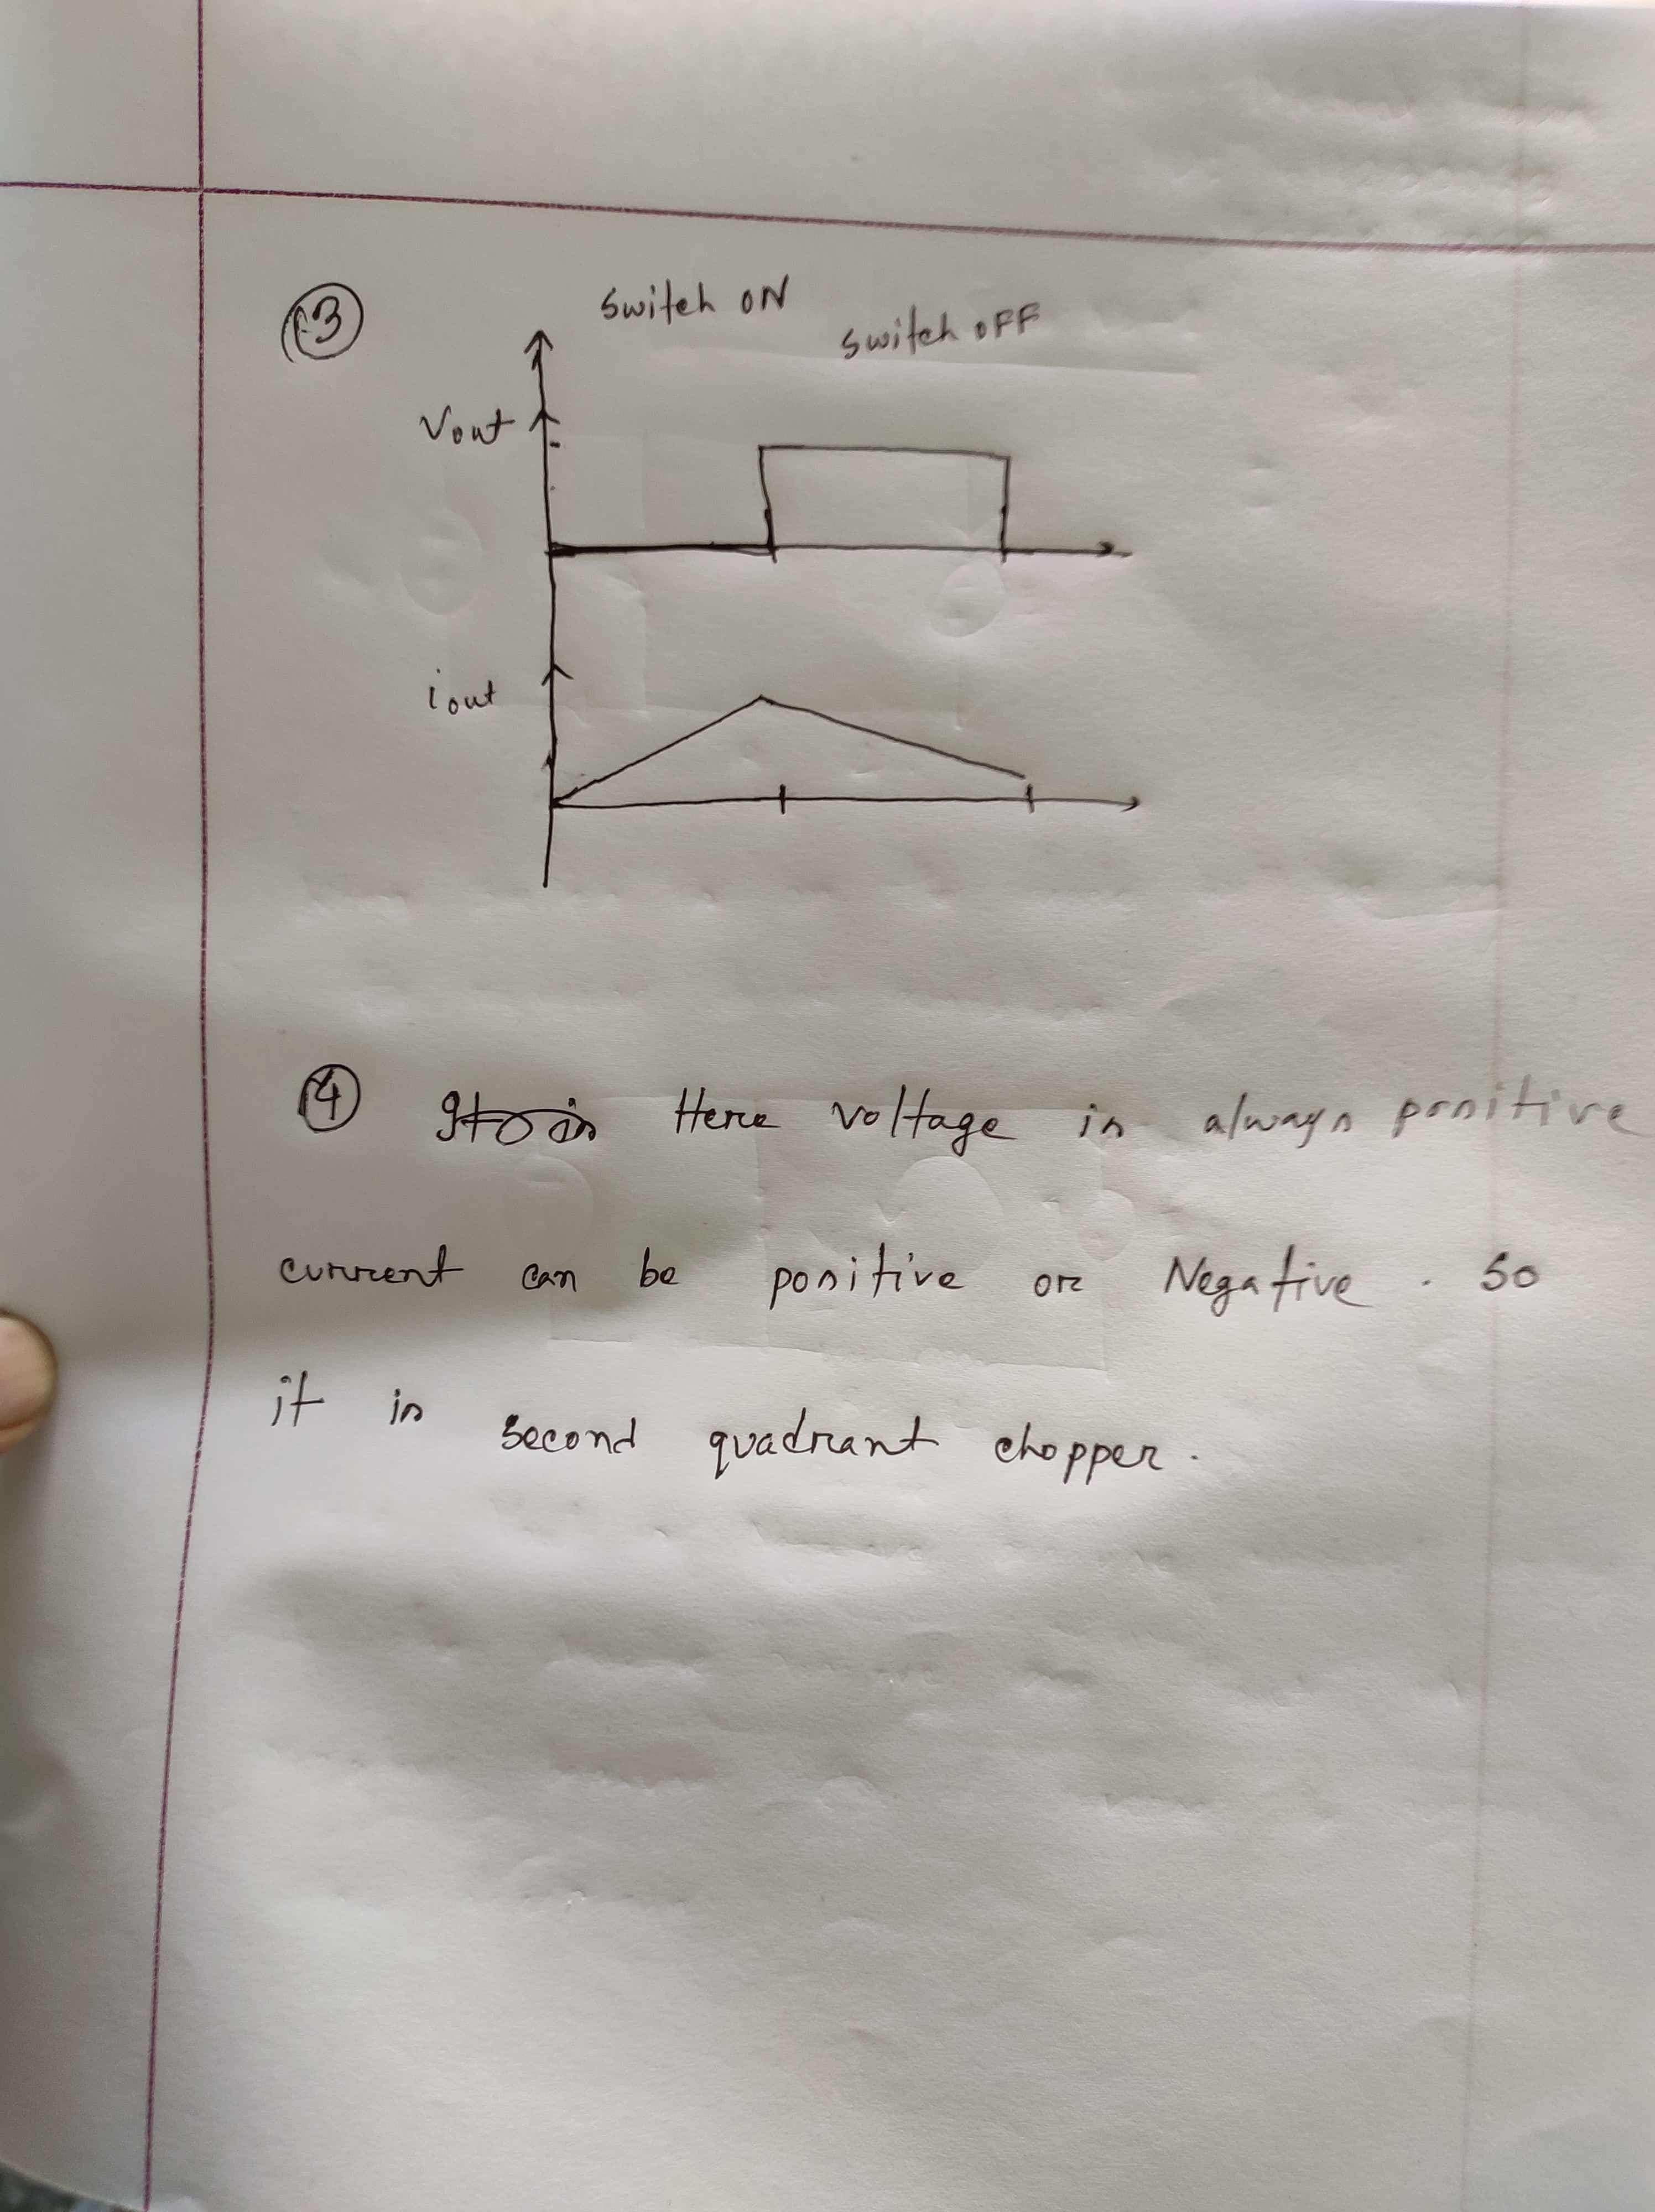 3
Switch ON
Switch OFF
Vout
iout
4 It is Here voltage is always positive
current can be positive or Negative. So
it is second quadrant chopper.